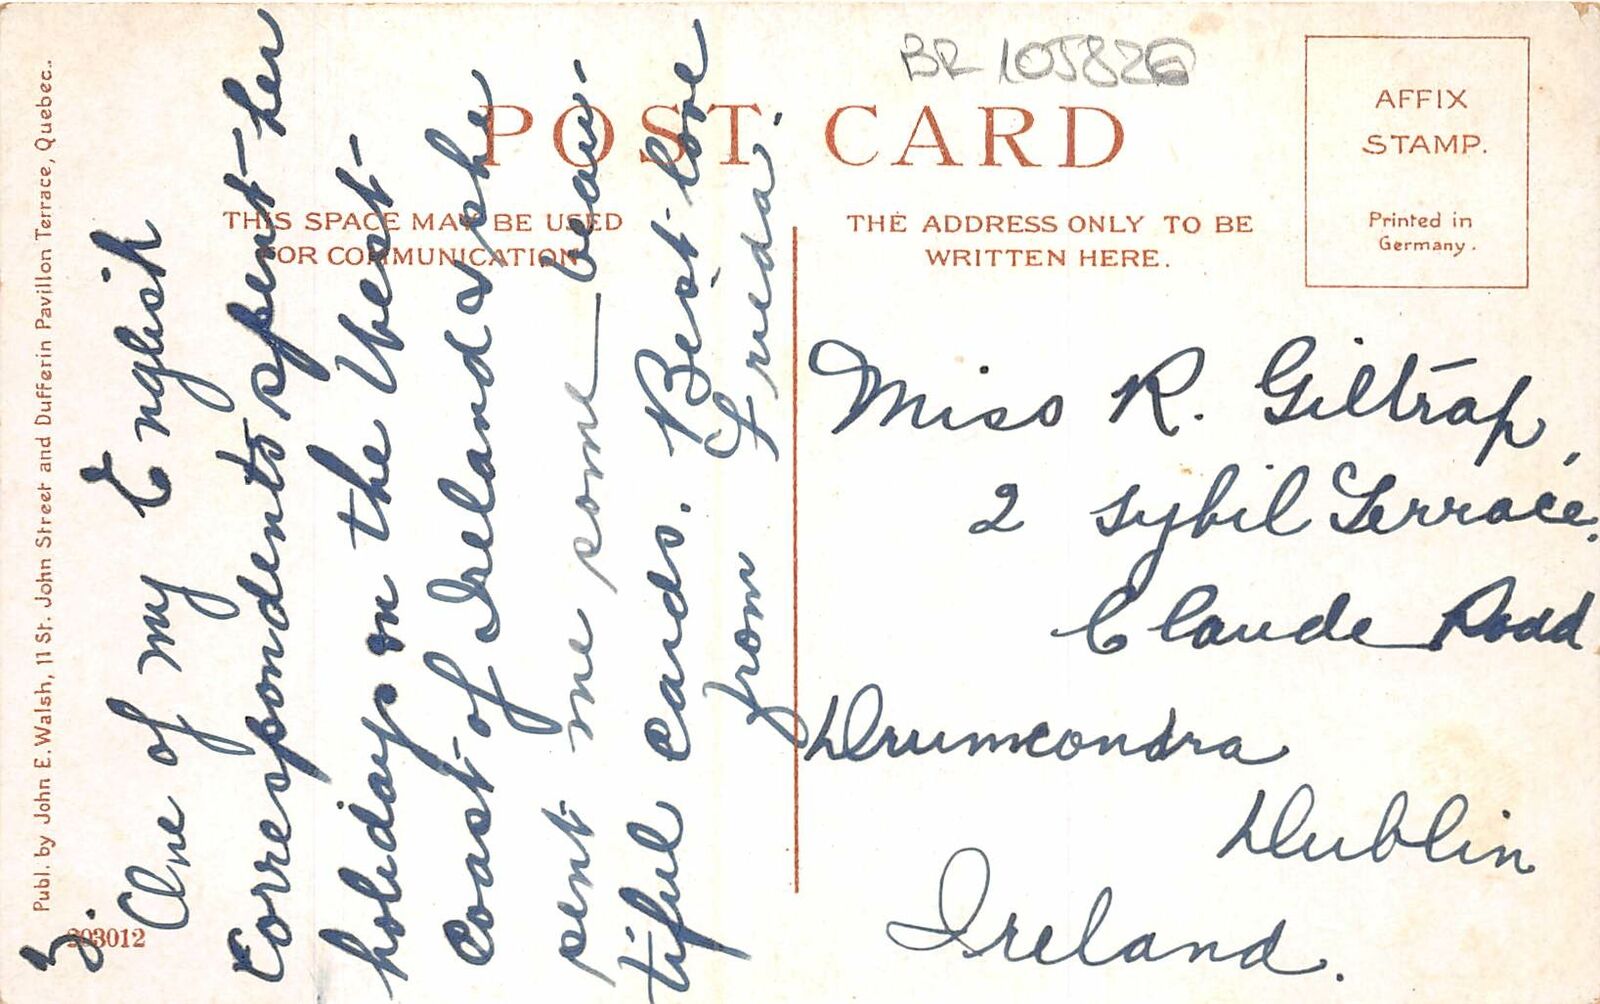 BR 105826
POST CARD
THIS SPACE MAY BE USED
FOR COMMUNICATION
THE ADDRESS ONLY TO BE
WRITTEN HERE.
AFFIX
STAMP.
Printed in
Germany.
Publ. by John E. Walsh, 11 St. John Street and Dufferin Pavillon Terrace, Quebec..
203012
3.
One of my English
correspondents spent her
holidays on the West
Coast of Ireland & she
sent me some beau-
tiful cards. Best love
from Frieda.
Miss R. Giltrap,
2 Sybil Terrace.
Claude Road
Drumcondra
Dublin
Ireland.